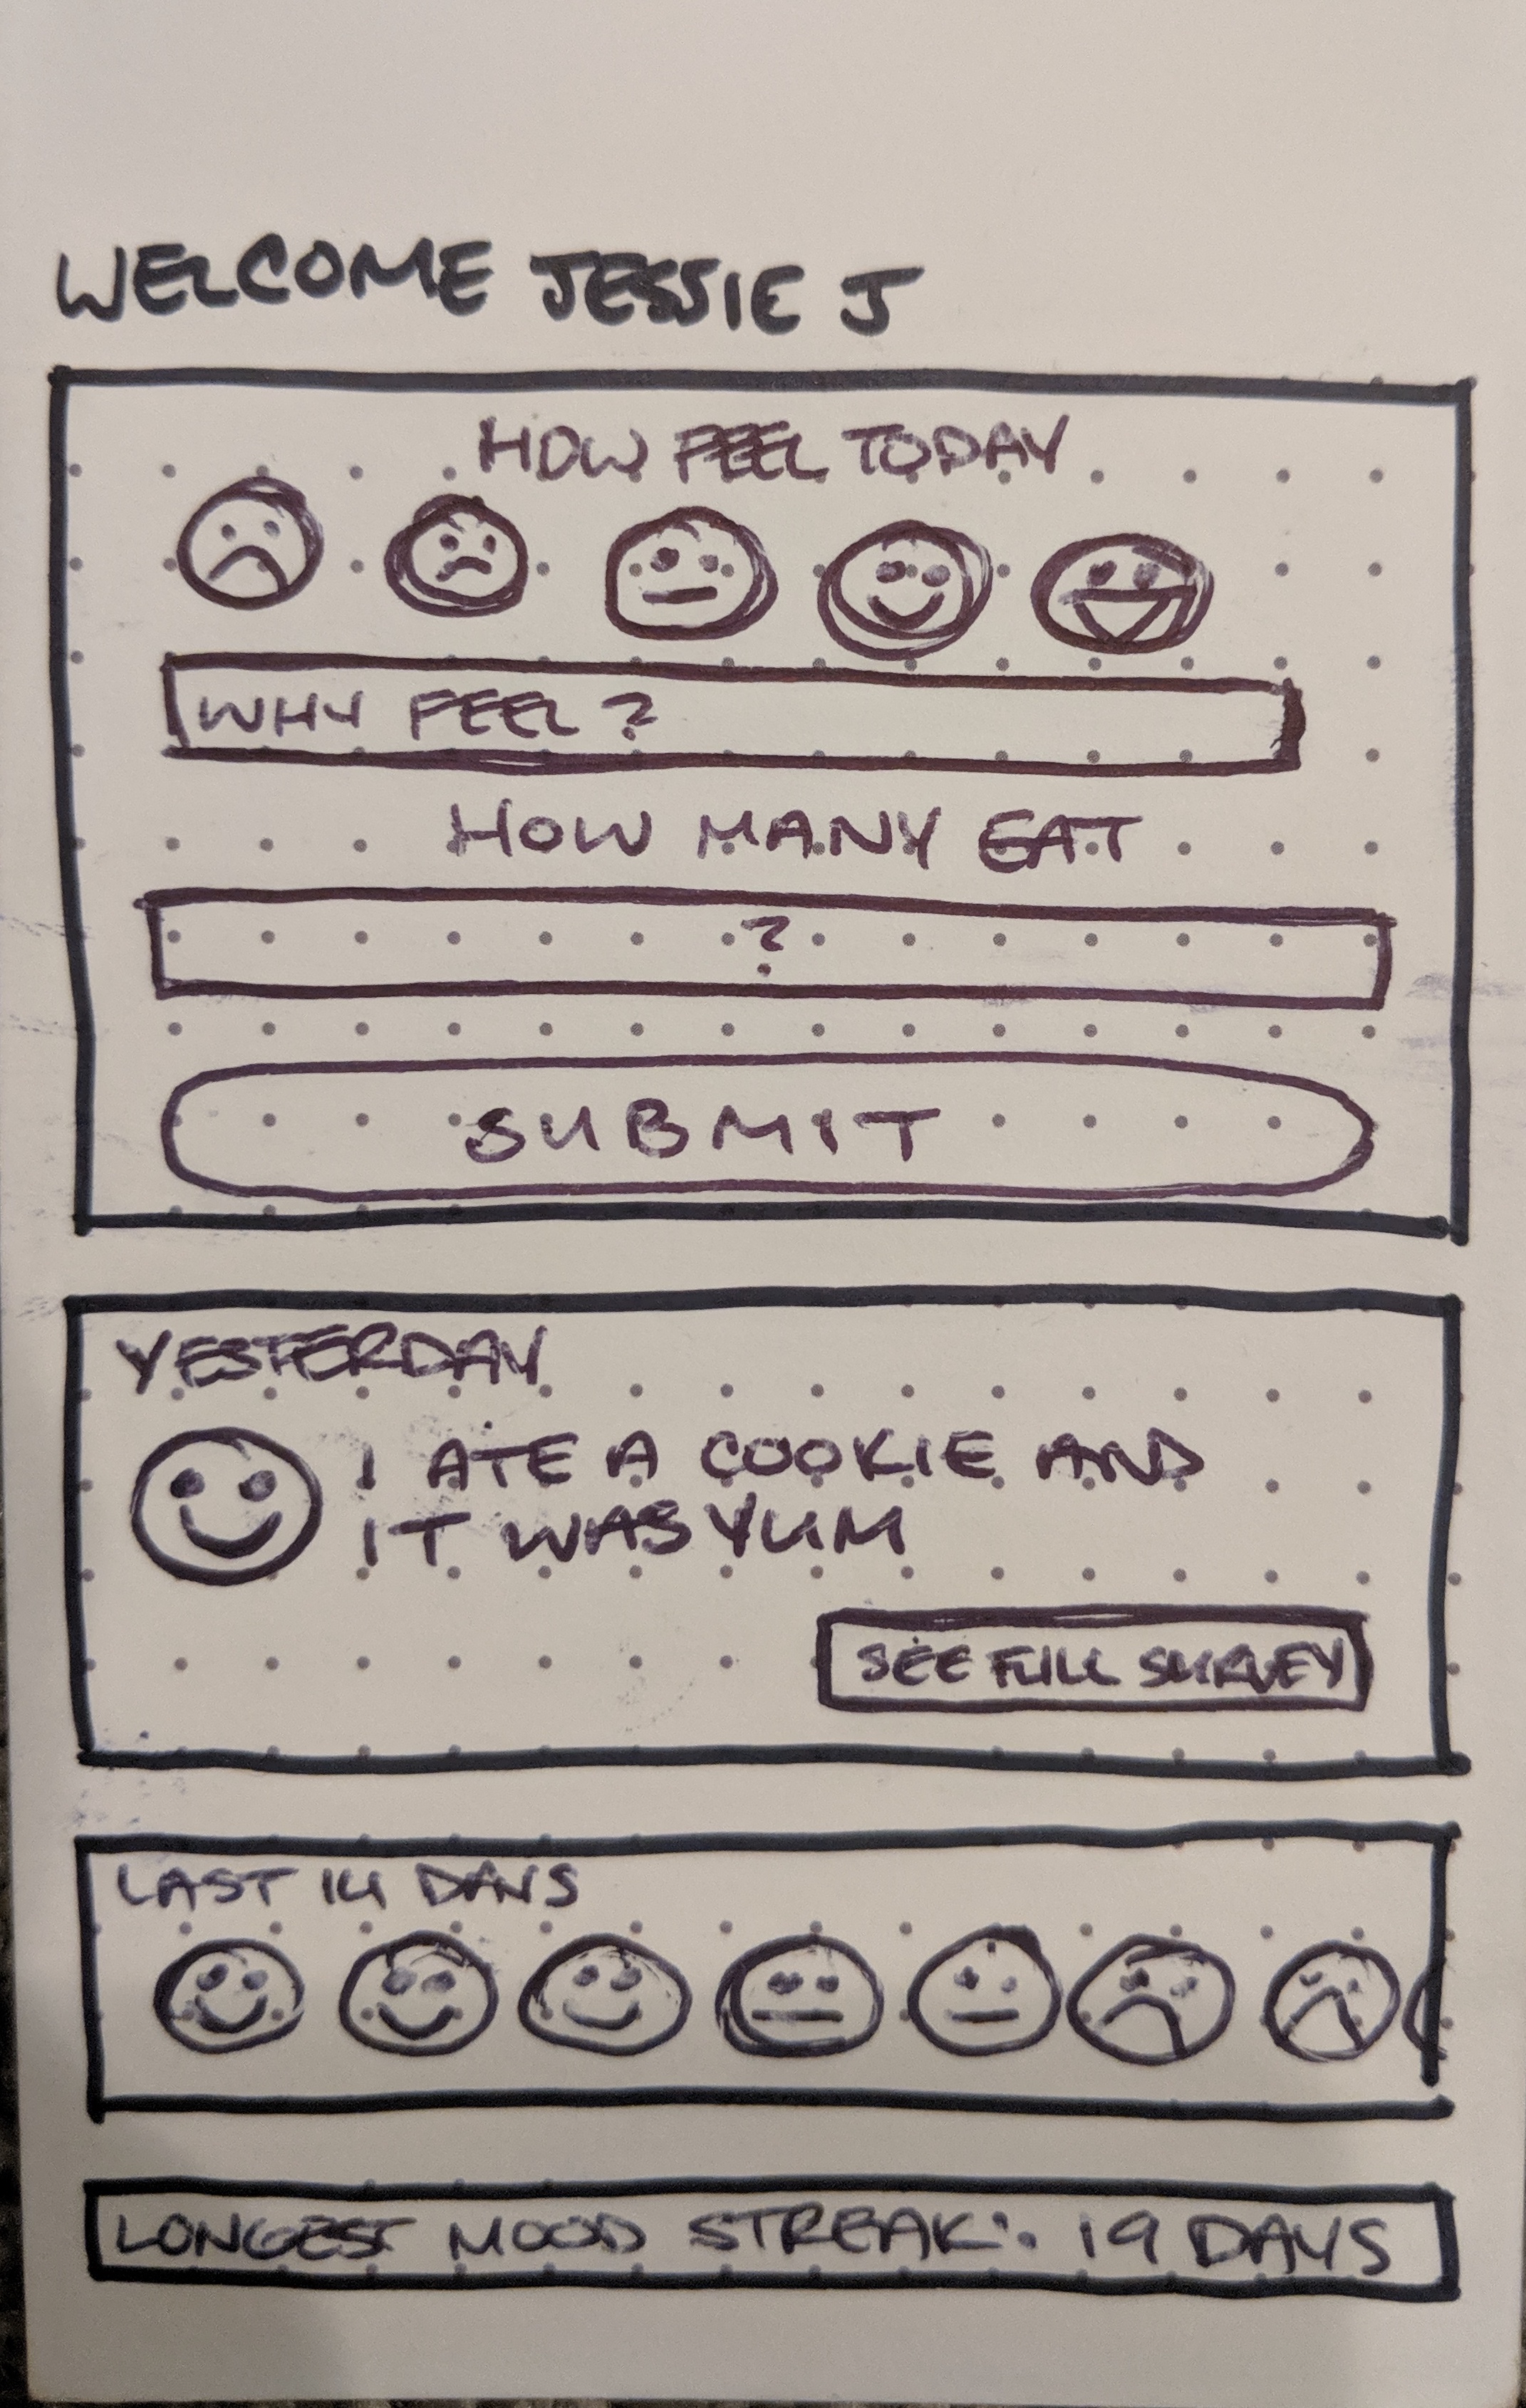 WELCOME JESSIE J
HOW FEEL TODAY
WHY FEEL?
HOW MANY EAT
?
SUBMIT
YESTERDAY
I ATE A COOKIE AND
IT WAS YUM
SEE FULL SURVEY
LAST 14 DAYS
LONGEST MOOD STREAK: 19 DAYS